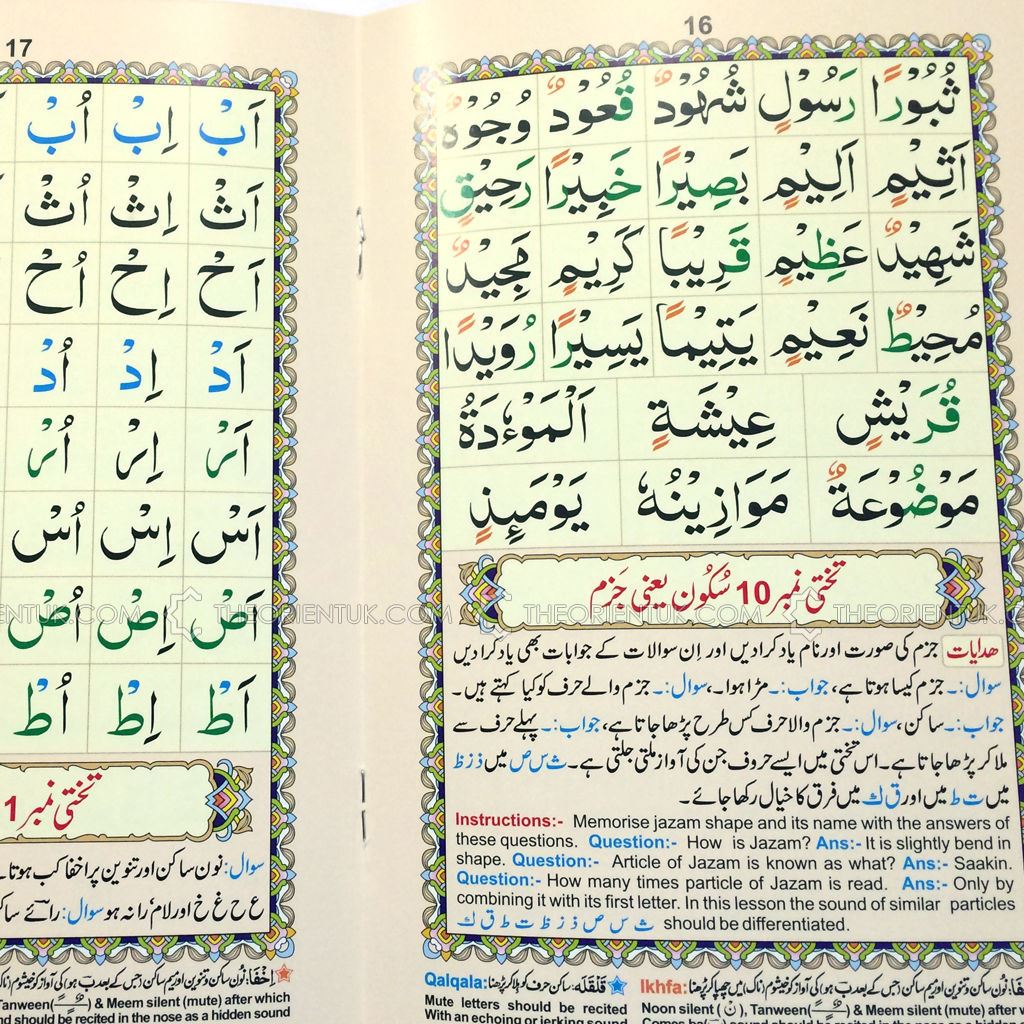 16
ثُبُوْرًا رَسُوْلٍ شُهُوْدٌ قُعُوْدٌ وُجُوْهٌ
اَثِيْمٍ اَلِيْمٍ بَصِيْرًا خَبِيْرًا رَحِيْقٍ
شَهِيْدٌ عَظِيْمٍ قَرِيْبًا كَرِيْمٍ مَجِيْدٌ
مُحِيْطٌ نَعِيْمٍ يَتِيْمًا يَسِيْرًا رُوَيْدًا
قُرَيْشٍ عِيْشَةٍ اَلْمَوْءٗدَةُ
مَوْضُوْعَةٌ مَوَازِيْنُهٗ يَوْمَئِذٍ
تختی نمبر 10 سُکُون یعنی جَزم
ھدایات جزم کی صورت اور نام یاد کرادیں اور اِن سوالات کے جوابات بھی یاد کرادیں
سوال:۔ جزم کیسا ہوتا ہے، جواب:۔ مڑا ہوا۔، سوال:۔ جزم والے حرف کو کیا کہتے ہیں۔
جواب:۔ ساکن، سوال:۔ جزم والا حرف کس طرح پڑھا جاتا ہے، جواب:۔ پہلے حرف سے
ملا کر پڑھا جاتا ہے۔ اس تختی میں ایسے حروف جن کی آواز ملتی جلتی ہے۔ ث س ص میں ذ ز ظ
میں ت ط میں اور ق ك میں فرق کا خیال رکھا جائے۔
Instructions:- Memorise jazam shape and its name with the answers of
these questions. Question:- How is Jazam? Ans:- It is slightly bend in
shape. Question:- Article of Jazam is known as what? Ans:- Saakin.
Question:- How many times particle of Jazam is read. Ans:- Only by
combining it with its first letter. In this lesson the sound of similar particles
ث س ص ذ ز ظ ت ط ق ك should be differentiated.
Ikhfa: نُون ساکن و تنوین اور میم ساکن جس کے بعد ب ہو کی آواز کو خیشوم (ناک) میں چھپا کر پڑھنا
Noon silent (نْ), Tanween(ـًـٍـٌ) & Meem silent (mute) after
Comes ba(ب) sound should be recited in the nose
Qalqala: قَلْقَلَہ: ساکن حرف کو ہلا کر پڑھنا
Mute letters should be recited
With an echoing or jerking sound
17
اَبْ اِبْ اُبْ
اَثْ اِثْ اُثْ
اَحْ اِحْ اُحْ
اَدْ اِدْ اُدْ
اَرْ اِرْ اُرْ
اَسْ اِسْ اُسْ
اَصْ اِصْ اُصْ
اَطْ اِطْ اُطْ
تختی نمبر 1
سوال: نون ساکن اور تنوین پر اخفا کب ہوتا
ع ح غ خ اور لام را نہ ہو سوال: رائے ساکن
اِخْفَا: نُون ساکن و تنوین اور میم ساکن جس کے بعد ب ہو کی آواز کو خیشوم (ناک)
Tanween(ـًـٍـٌ) & Meem silent (mute) after which
should be recited in the nose as a hidden sound
THEORIENTUK.COM
THEORIENTUK.COM
THEORIENTUK.COM